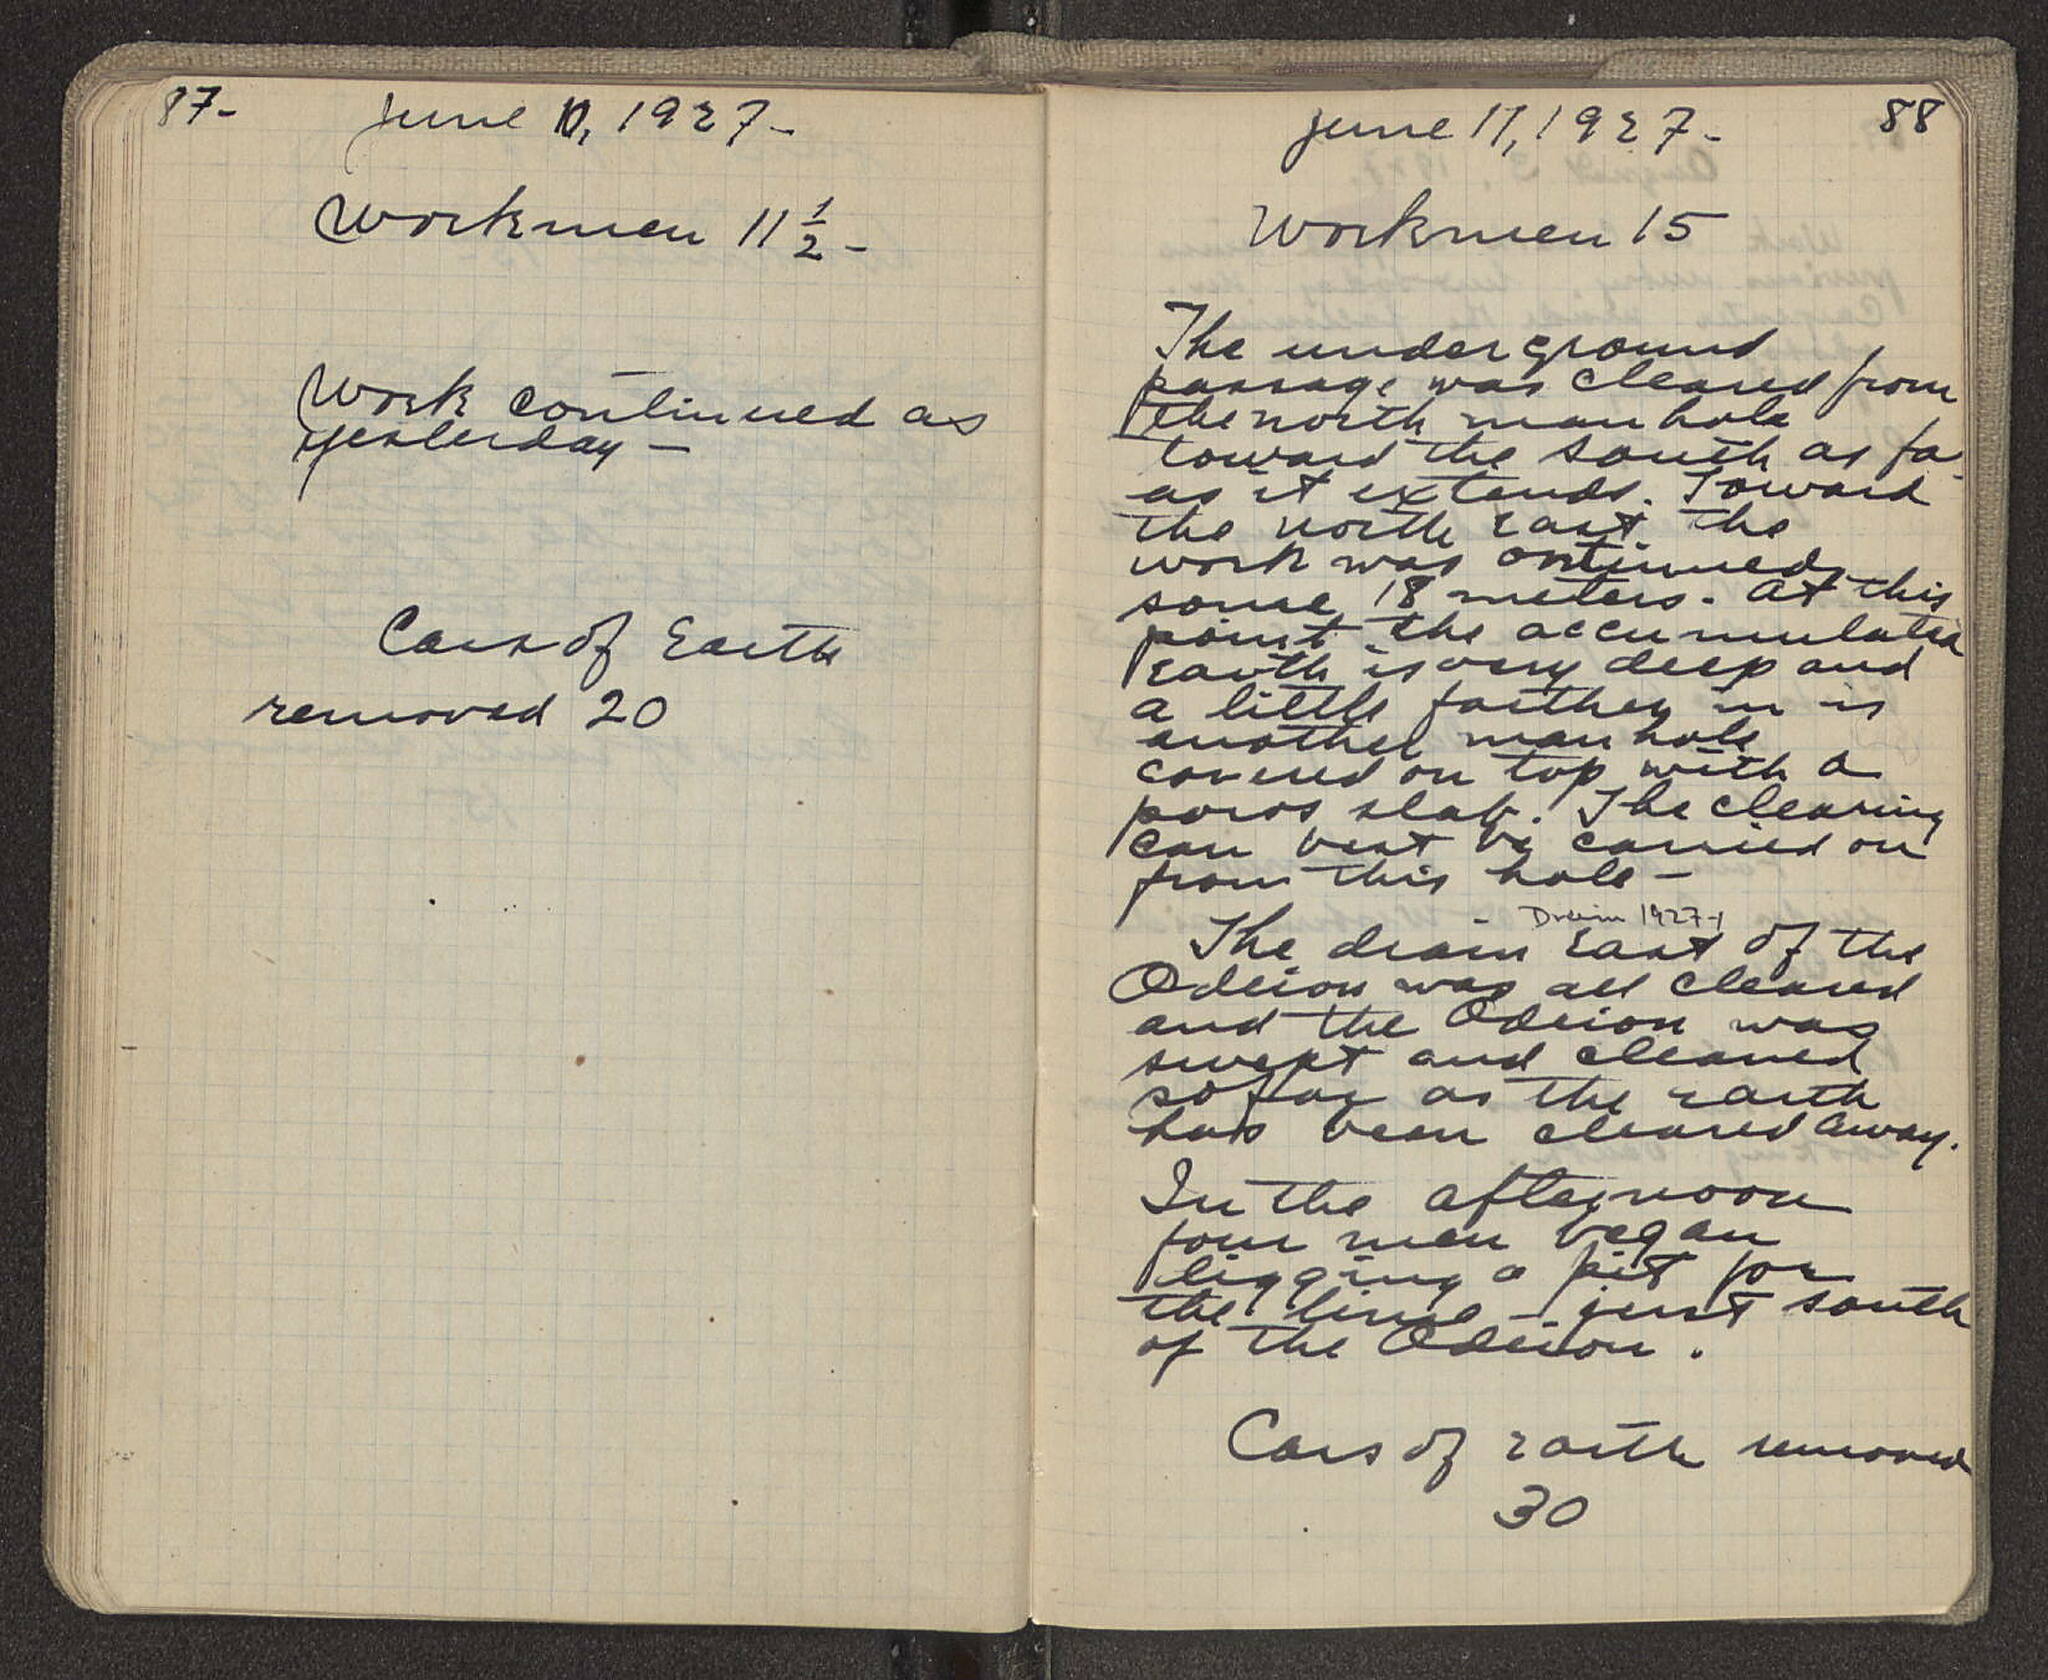 87-
June 10, 1927-
Workmen 11 1/2 -
Work continued as
yesterday -
Cars of Earth
removed 20
88
June 11, 1927-
Workmen 15
The underground
passage was cleared from
the north man hole
toward the south as fa
as it extends. Toward
the north east the
work was ontinued
some 18 meters. At this
point the accumulated
earth is very deep and
a little farther in is
another man hole
covered on top with a
poros slab. The clearing
can best be carried on
from this hole -
- Drain 1927-1
The drain east of the
Odeion was all cleared
and the Odeion was
swept and cleaned
so far as the earth
has been cleared away.
In the afternoon
four men began
digging a pit for
the lime - just south
of the Odeion.
Cars of earth removed
30